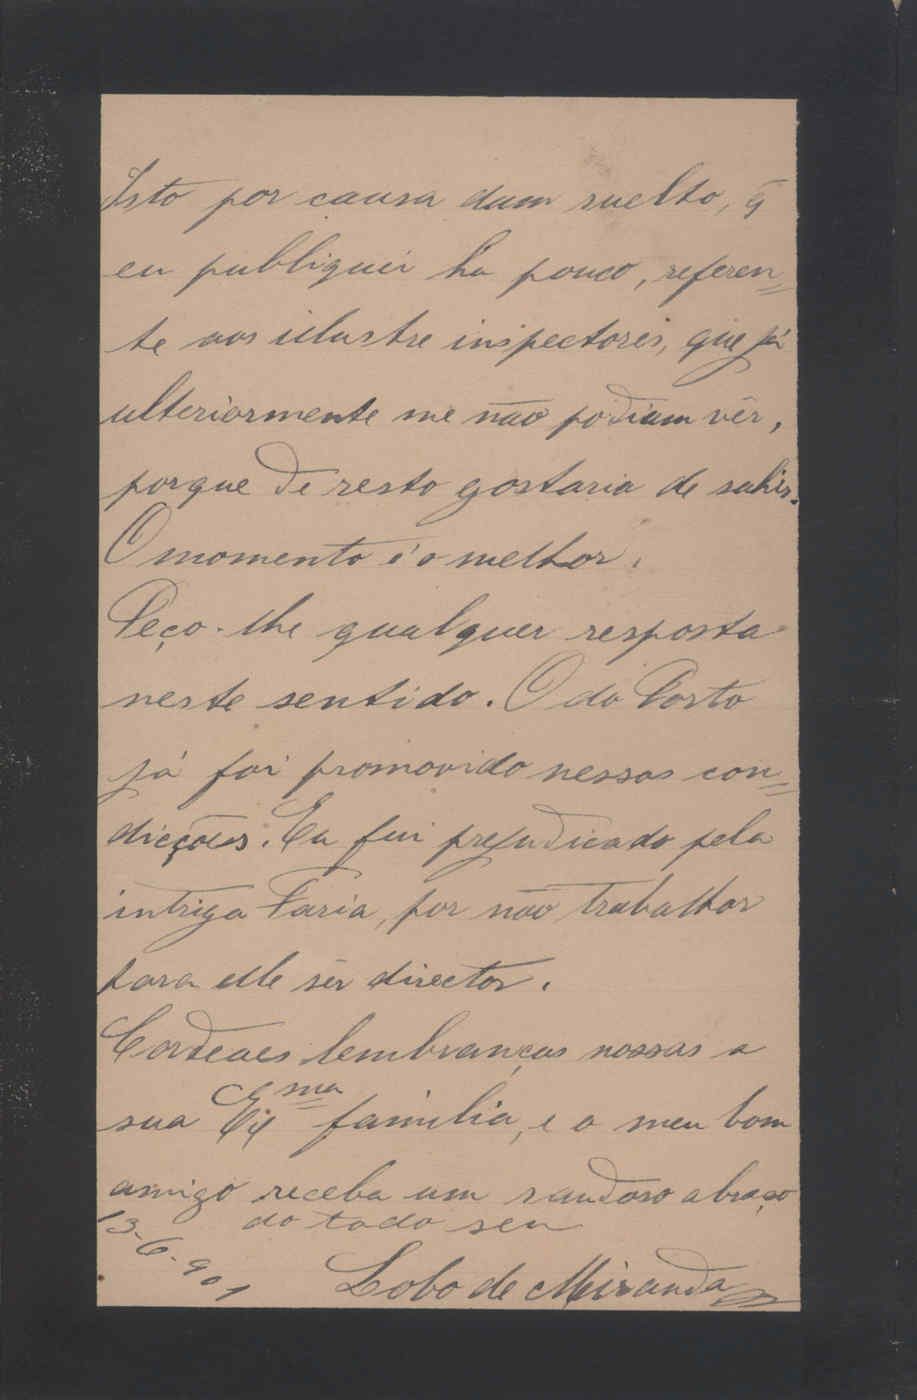 Isto por causa dum suelto, q̃
eu publiquei ha pouco, referen=
te aos illustre inspectores, que já
ulteriormente me não podiam vêr,
porque de resto gostaria de sahir.
O momento é o melhor.
Peço-lhe qualquer resposta
neste sentido. O do Porto
já foi promovido nessas con=
dicções. Eu fui prejudicado pela
intriga Faria, por não trabalhar
para elle sêr director.
Cordeaes lembranças nossas a
sua Exma familia, e o meu bom
amigo receba um saudoso abraço
do todo seu
13-6-901 Lobo de Miranda